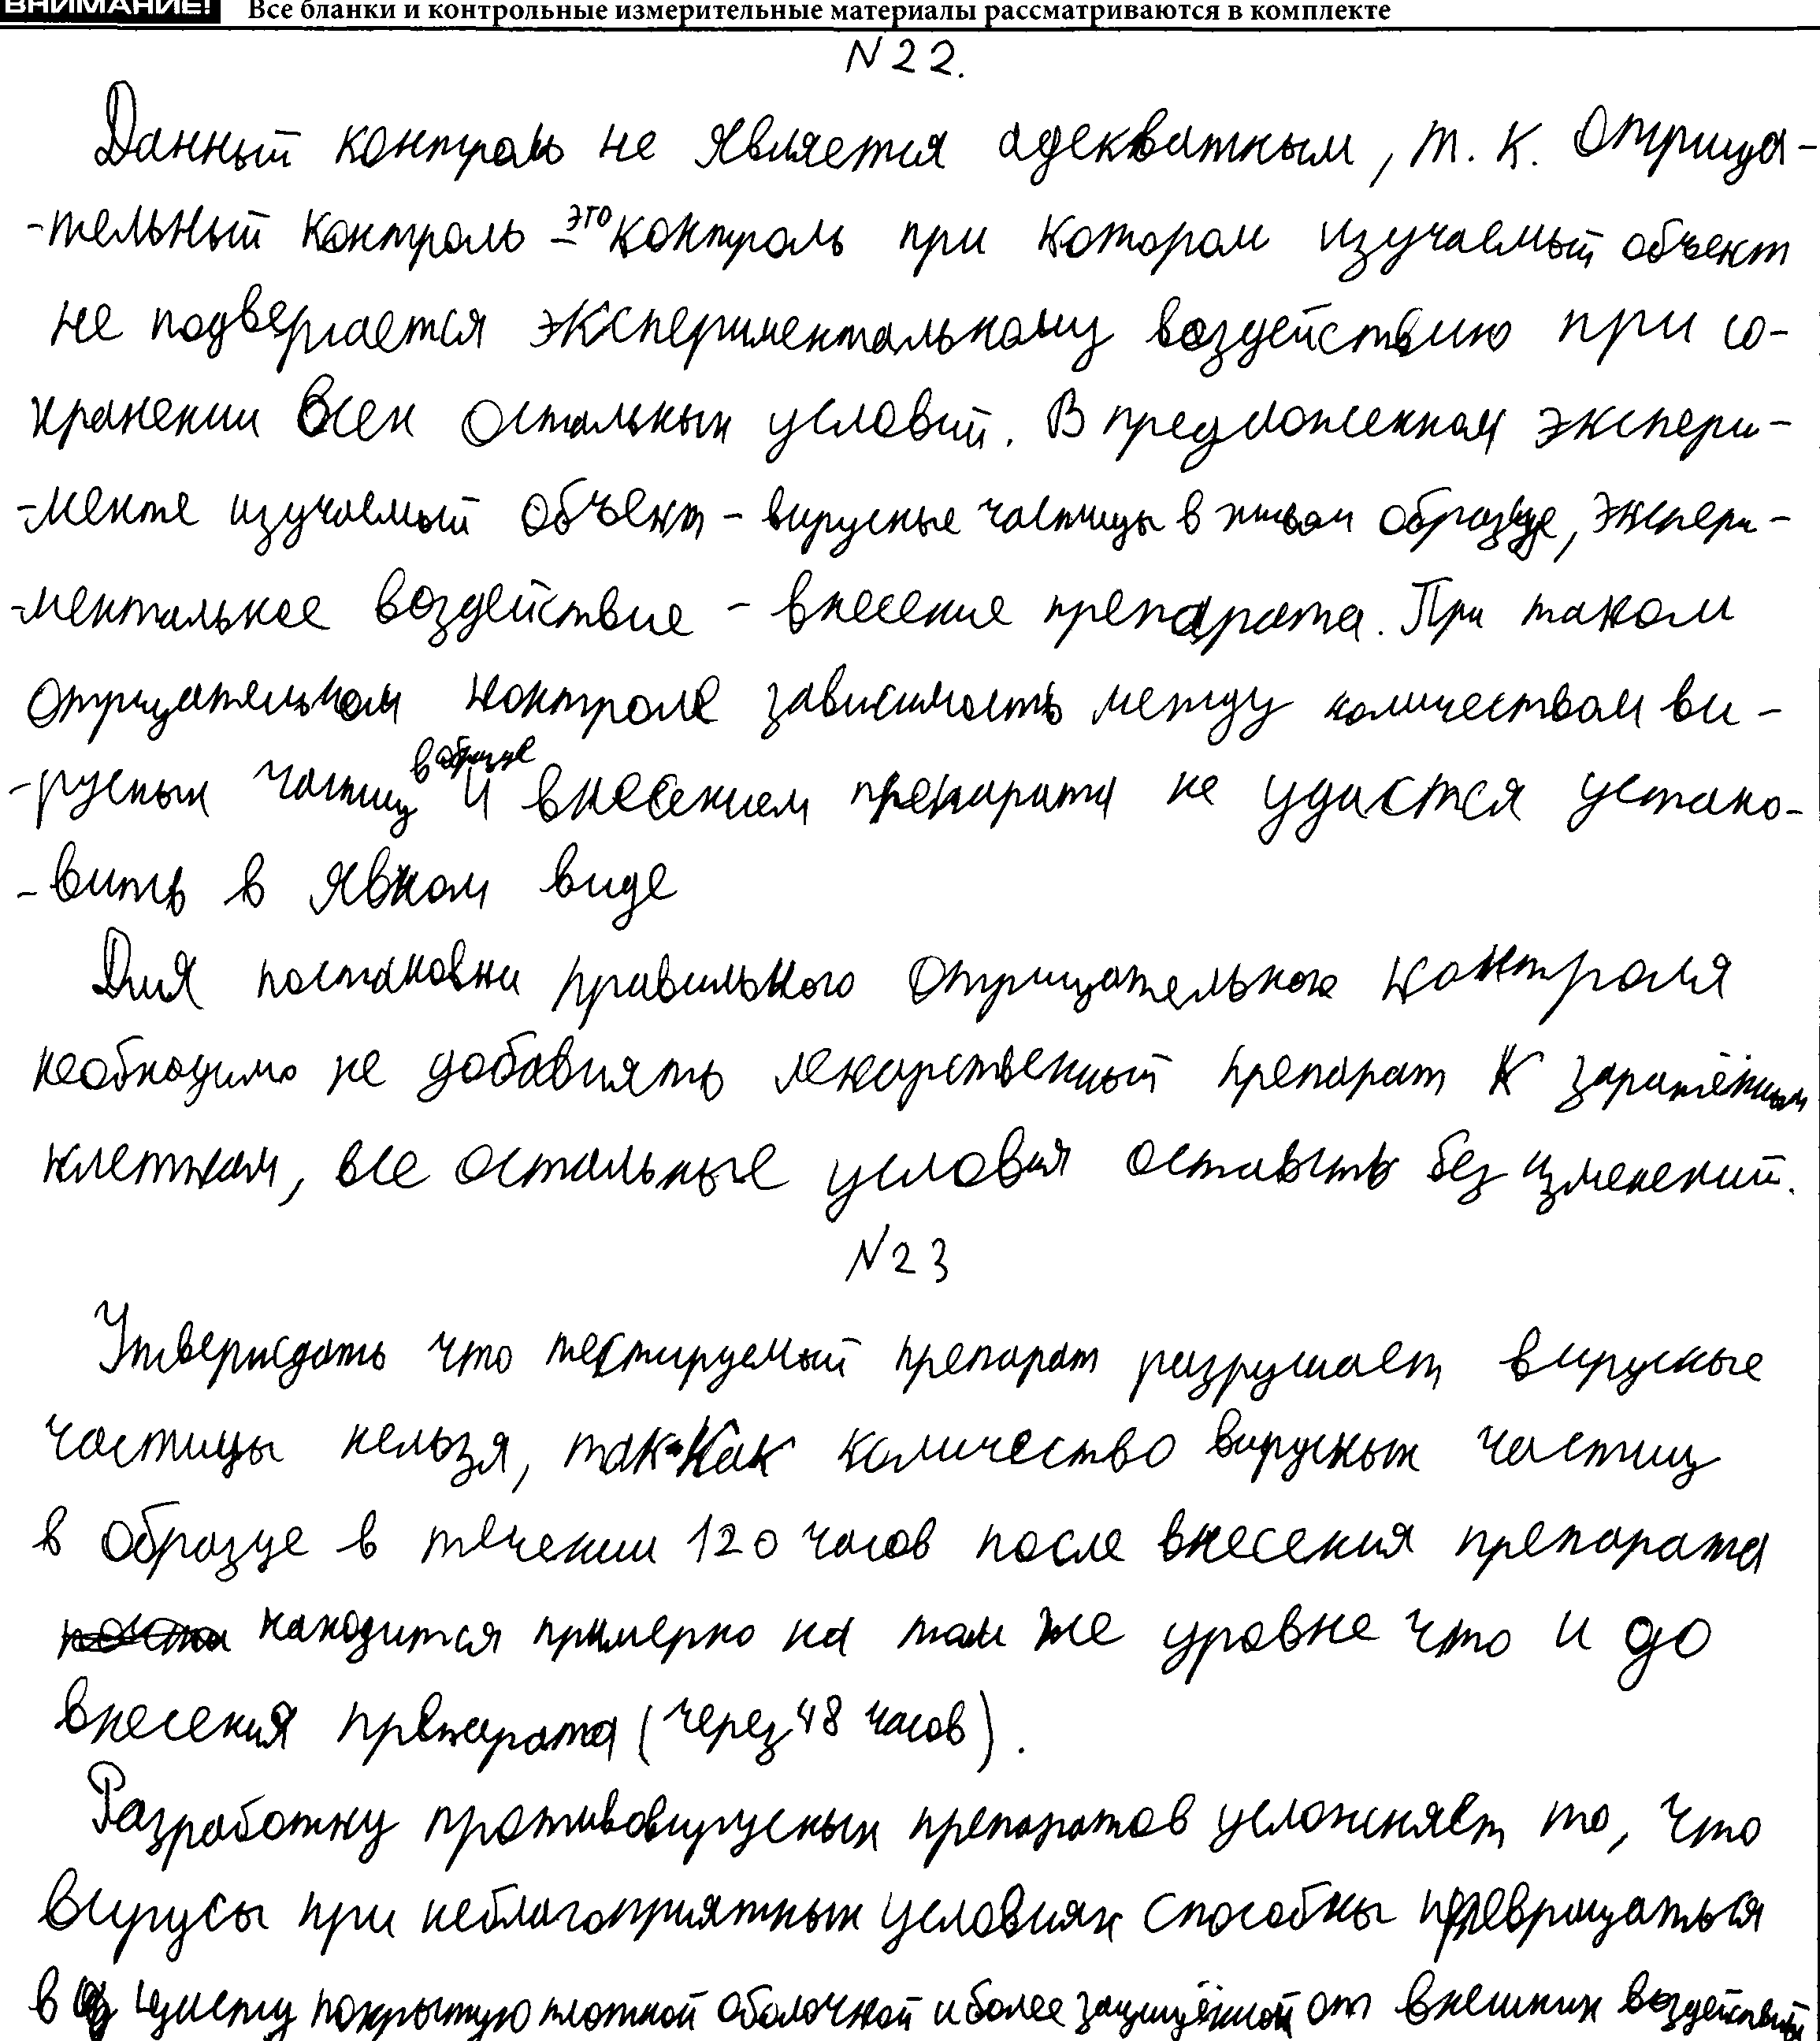 ВНИМАНИЕ! Все бланки и контрольные измерительные материалы рассматриваются в комплекте
N 22.
Данный контроль не является адекватным, т. к. отрица-
-тельный контроль – это контроль при котором изучаемый объект
не подвергается экспериментальному воздействию при со-
хранении всех остальных условий. В предложенном экспери-
-менте изучаемый объект – вирусные частицы в живом образце, экспери-
-ментальное воздействие – внесение препарата. При таком
отрицательном контроле зависимость между количеством ви-
-русных частиц в образце и внесением препарата не удастся устано-
-вить в явном виде
Для постановки правильного отрицательного контроля
необходимо не добавлять лекарственный препарат к заражённым
клеткам, все остальные условия оставить без изменений.
N 23
Утверждать что тестируемый препарат разрушает вирусные
частицы нельзя, так как количество вирусных частиц
в образце в течении 120 часов после внесения препарата
находится примерно на том же уровне что и до
внесения препарата (через 48 часов).
Разработку противовирусных препаратов усложняет то, что
вирусы при неблагоприятных условиях способны превращаться
в цисту покрытую плотной оболочкой и более защищённой от внешних воздействий